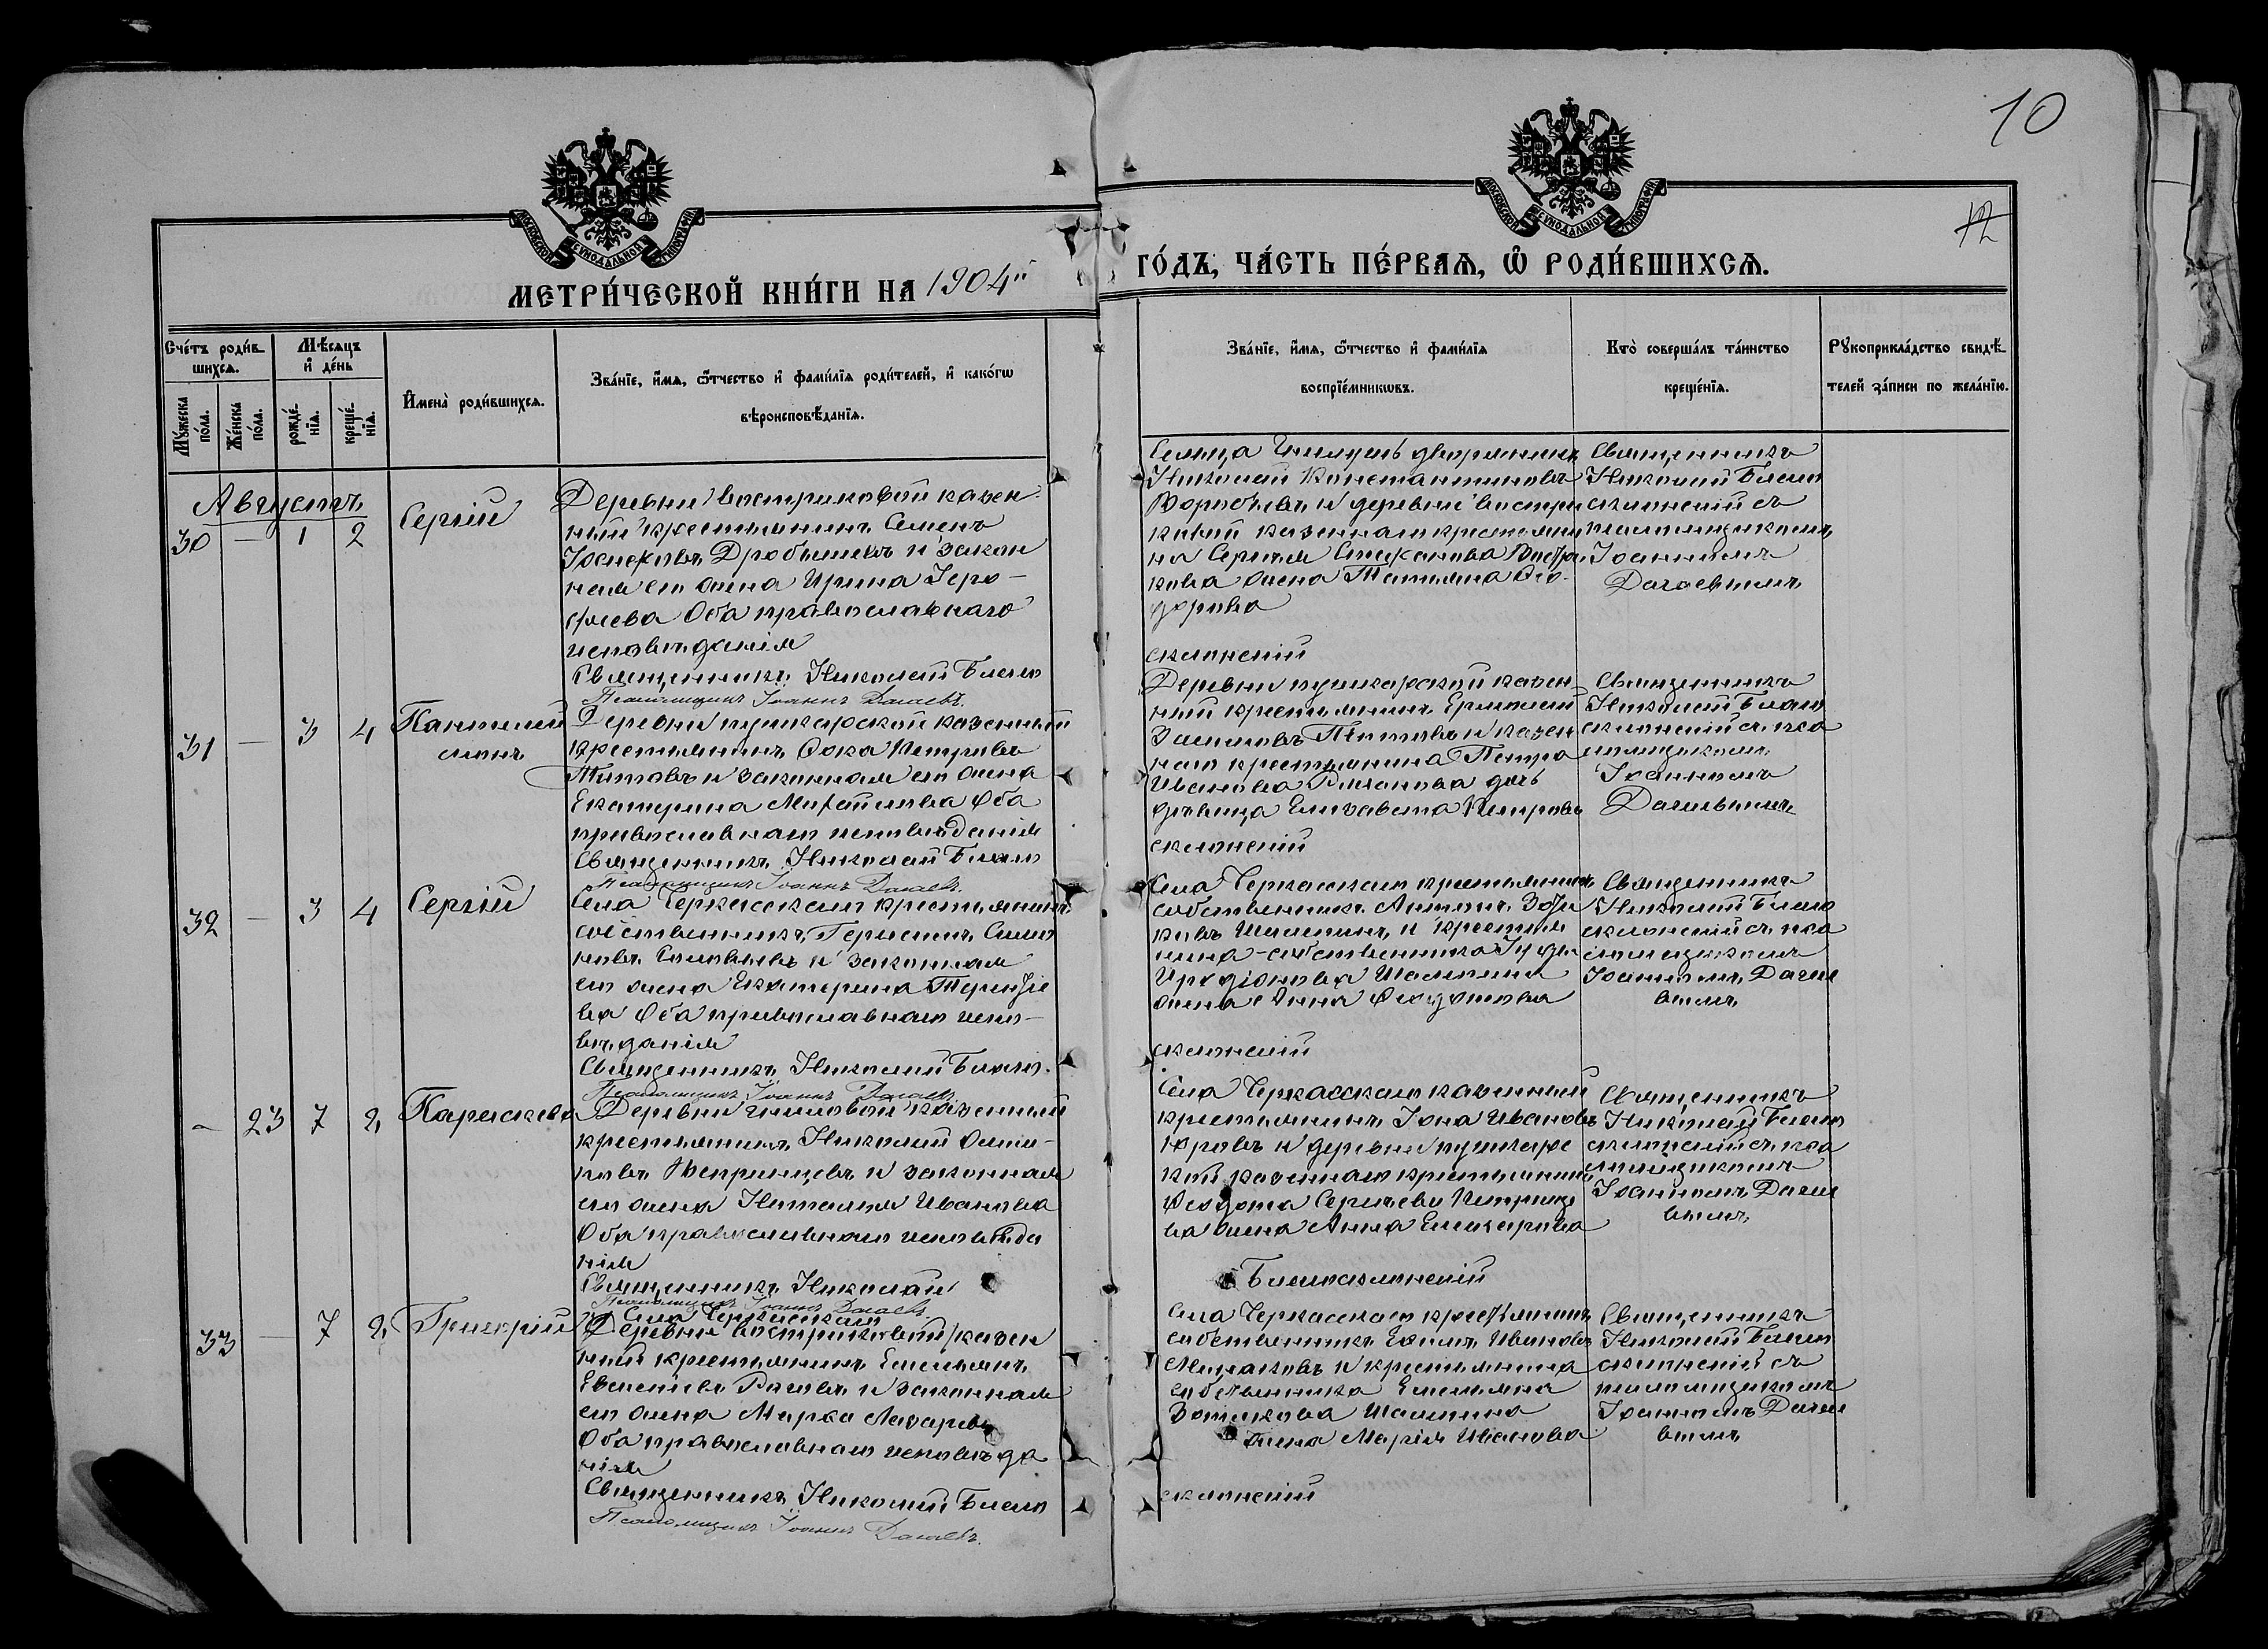 10
12
МОСКОВСКОЙ СѴНОДАЛЬНОЙ ТИПОГРАФІИ
МОСКОВСКОЙ СѴНОДАЛЬНОЙ ТИПОГРАФІИ
МЕТРИ́ЧЕСКОЙ КНИ́ГИ НА 1904й
ГО́ДЪ, ЧА́СТЬ ПЕ́РВАѦ, Ѡ РОДИ́ВШИХСѦ.
Сче́тъ роди́в-
шихсѧ.
Мꙋ́жеска
по́ла.
Же́нска
по́ла.
Мѣ́сѧцъ
и҆ де́нь
рожде́-
нїѧ.
креще́-
нїѧ.
И҆мена̀ роди́вшихсѧ.
Зва́нїе, и҆́мѧ, ѻ҆́тчество и҆ фами́лїѧ роди́телей, и҆ како́гѡ
вѣроисповѣ́данїѧ.
Зва́нїе, и҆́мѧ, ѻ҆́тчество и҆ фами́лїѧ
воспрїе́мникѡвъ.
Кто̀ соверша́лъ та́инство
креще́нїѧ.
Рꙋкоприкла́дство свидѣ́-
телей за́писи по жела́нїю.
Августъ
30 — 1 2
Сергій
Деревни Востриковой казен-
ный крестьянинъ Семенъ
Іосифовъ Дробышевъ и закон
ная его жена Ирина Іеро-
феева Оба православнаго
исповѣданія
Священникъ Николай Благо
Псаломщикъ Іоаннъ Дагаевъ.
дворянинъ
Николай Константиновъ
Воробьевъ и деревни Востри
ковой казеннаго крестьяни
на Сергѣя Востри
кова жена Татьяна Ѳео-
дорова
склонскій
Священникъ
Николай Благо
склонскій съ
псаломщикомъ
Іоанномъ
Дагаевымъ
31 — 3 4
Пантелей
монъ
Деревни пушкарской казенный
крестьянинъ Фока Петровъ
Титовъ и законная его жена
Екатерина Михайлова Оба
православнаго исповѣданія
Священникъ Николай Благо
Псаломщикъ Іоаннъ Дагаевъ.
Деревни пушкарской казен-
ный крестьянинъ Ермолай
Титовъ и казен
наго крестьянина Петра
Иванова дочь
дѣвица Елизавета Петрова
склонскій
Священникъ
Николай Благо
склонскій съ пса
ломщикомъ
Іоанномъ
Дагаевымъ
32 — 3 4
Сергій
Села Черкасскаго крестьянинъ
собственникъ Герасимъ
и законная
его жена Екатерина Терентье
ва Оба православнаго испо-
вѣданія
Священникъ Николай Благо-
Псаломщикъ Іоаннъ Дагаевъ
Села Черкасскаго крестьянинъ
собственникъ Антонъ
Шалыгинъ и крестья
нина-собственника
Иродіонова
жена Анна Ѳеодотова
склонскій
Священникъ
Николай Благо
склонскій съ пса
ломщикомъ
Іоанномъ Дагае
вымъ
— 23 7 8
Параскева
Деревни казенный
крестьянинъ Николай
и законная
его жена Наталья Иванова
Оба православнаго исповѣда
нія
Священникъ Николай
Псаломщикъ Іоаннъ Дагаевъ
Села Черкасскаго казенный
крестьянинъ Іона Ивановъ
и деревни пушкарс
кой казеннаго крестьянина
Ѳеодота Сергѣева
ва жена Анна Елизарова
Благосклонскій
Священникъ
Николай Благо
склонскій съ пса
ломщикомъ
Іоанномъ Дагае
вымъ
33 — 7 8
Григорій
Села Черкасскаго
Деревни Востриковой казен
ный крестьянинъ Емельянъ
и законная
его жена Марфа Лазарева
Оба православнаго исповѣда
нія
Священникъ Николай Благо
Псаломщикъ Іоаннъ Дагаевъ.
Села Черкасскаго крестьянинъ
собственникъ Ивановъ
и крестьянина
собственника Емельяна
жена Марія Иванова
склонскій
Священникъ
Николай Благо
склонскій съ
псаломщикомъ
Іоанномъ Дагае
вымъ